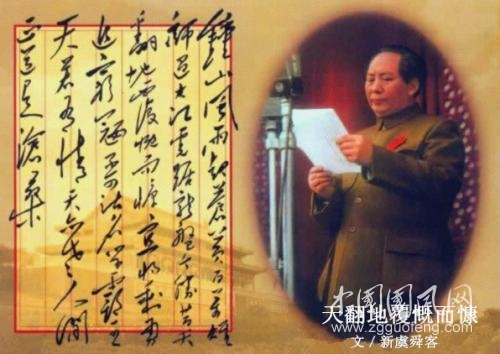 鐘山風雨起蒼黃百萬雄
師過大江虎踞龍盤今勝昔天
翻地覆慨而慷宜將剩勇
追窮寇不可沽名學霸王
天若有情天亦老人間
正道是滄桑
中国国风网
天翻地覆慨而慷
www.zgguofeng.com
文/新虞舜客